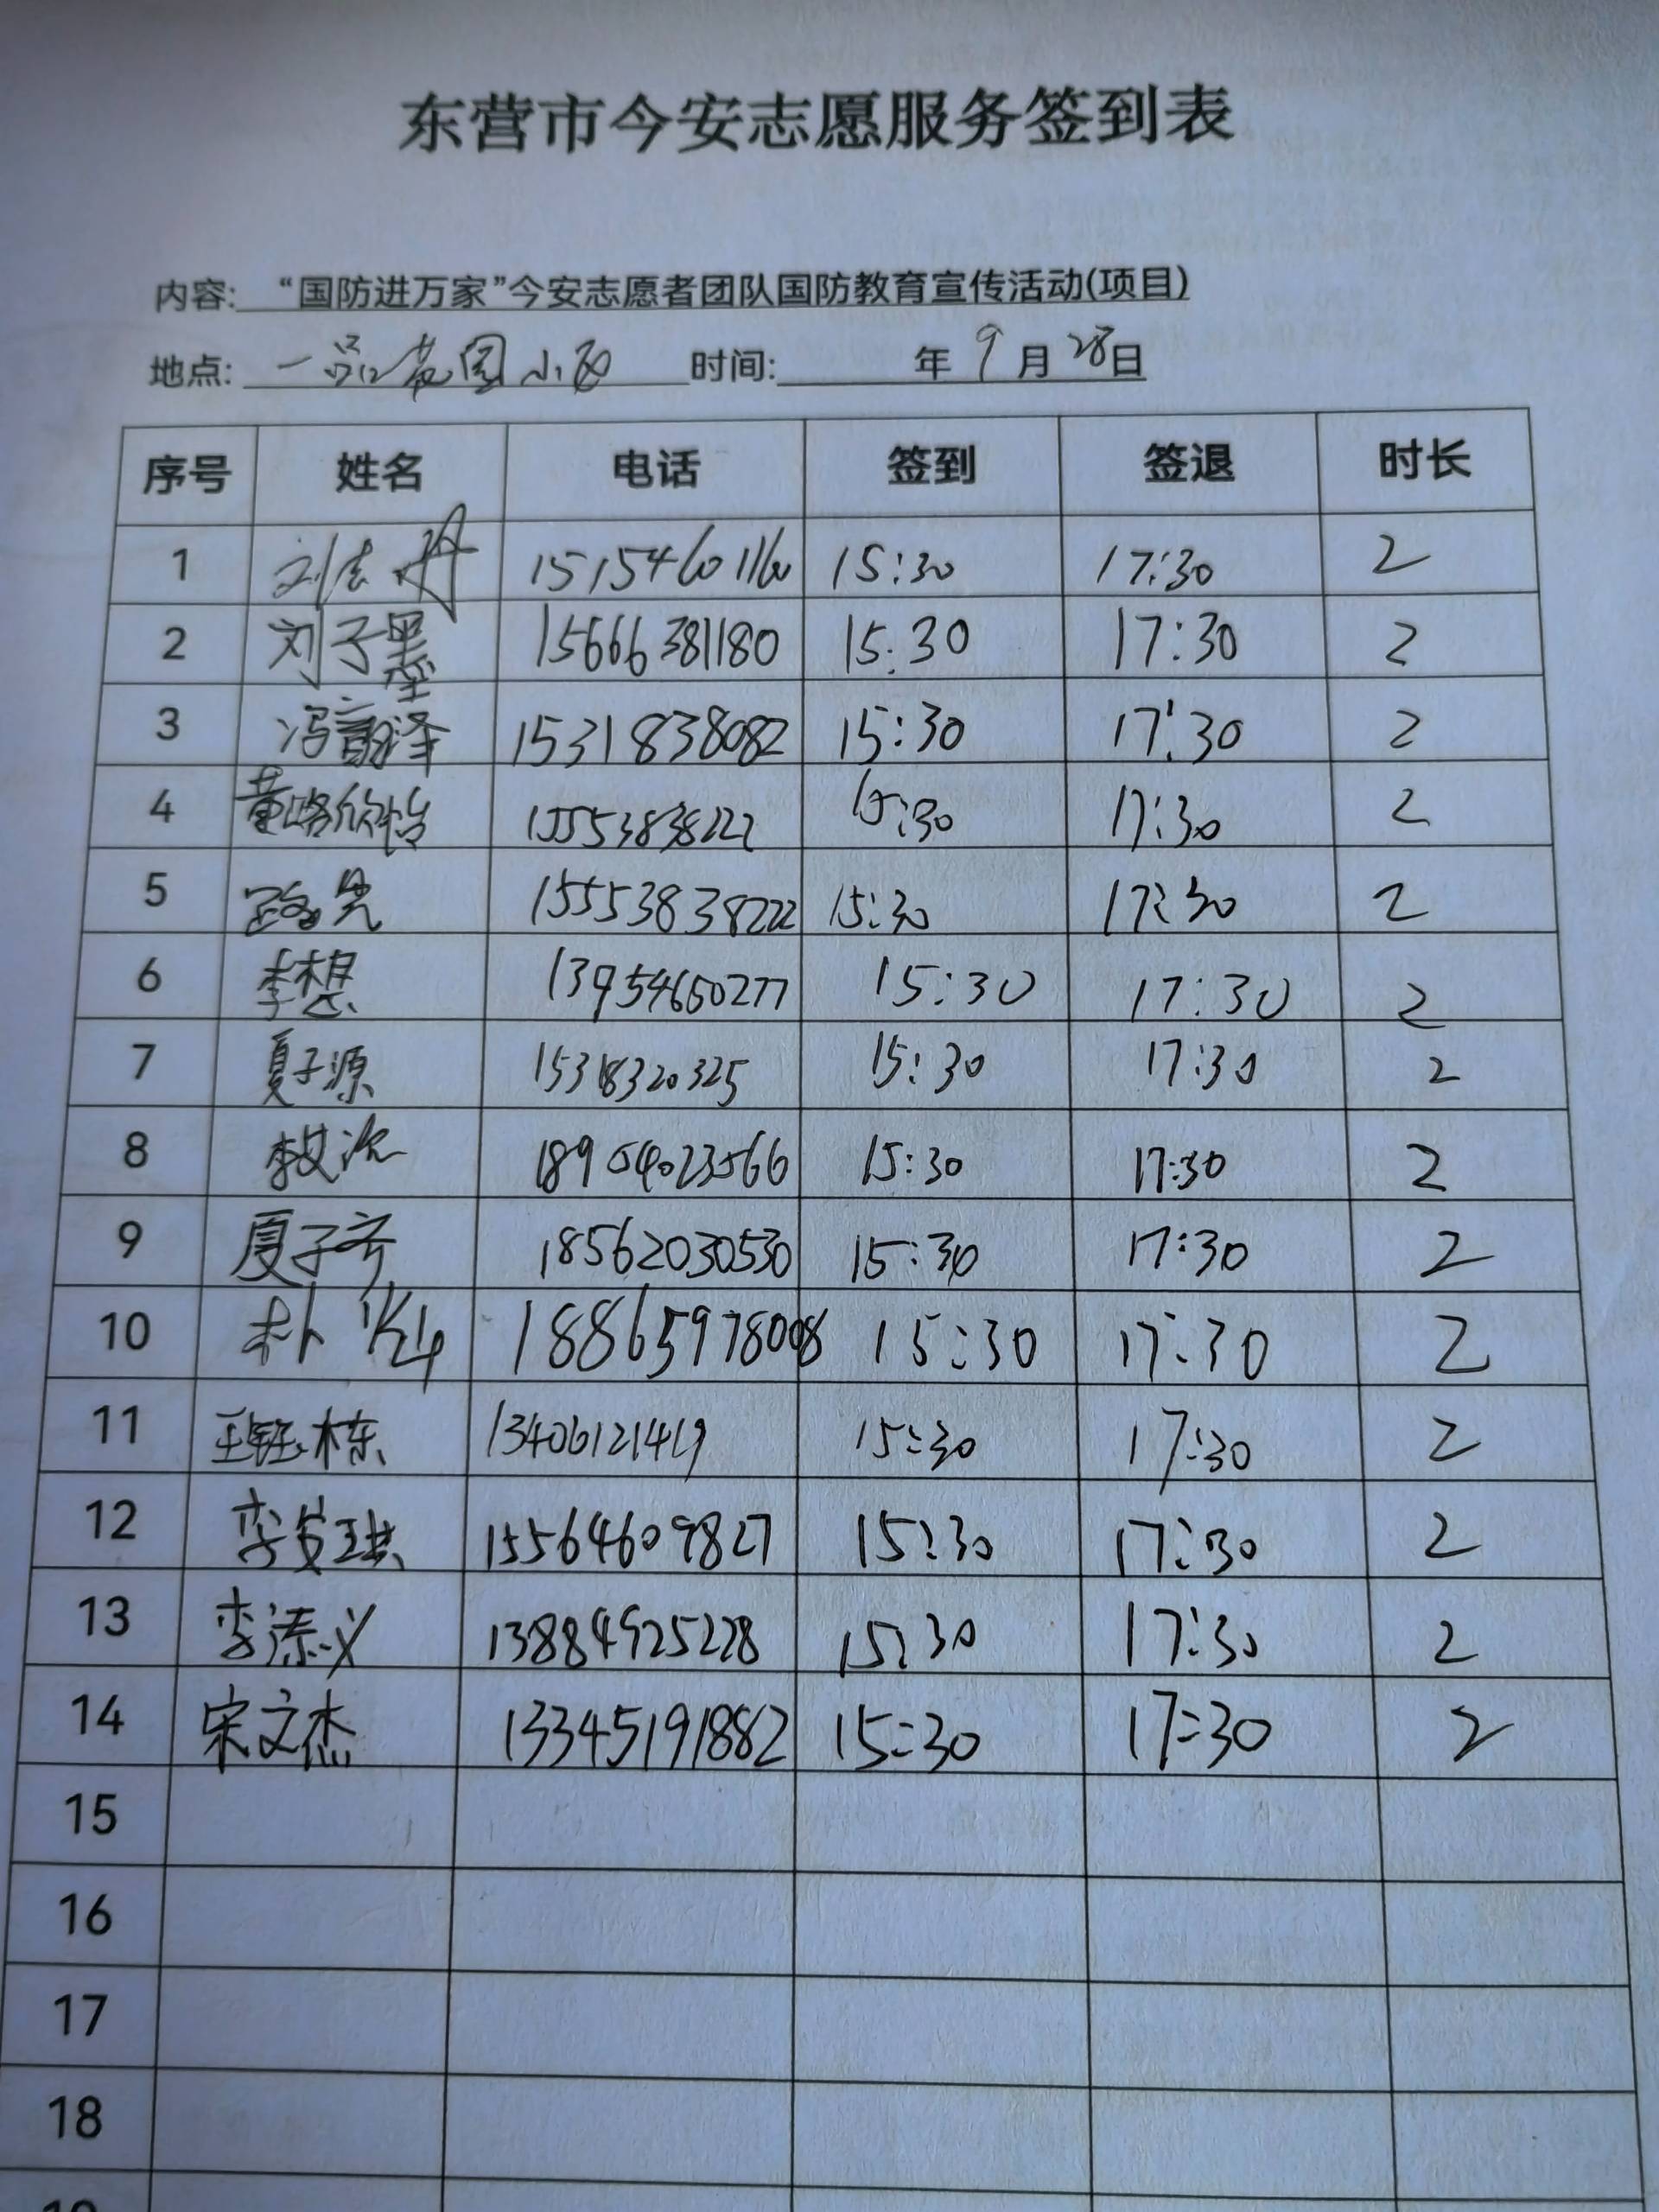 东营市今安志愿服务签到表
内容: “国防进万家”今安志愿者团队国防教育宣传活动(项目)
地点: 一品花园小区 时间: 年 9 月 28 日
序号 姓名 电话 签到 签退 时长
1 刘志丹 15154601160 15:30 17:30 2
2 刘子墨 15666381180 15:30 17:30 2
3 冯韵泽 15318838082 15:30 17:30 2
4 董路欣怡 15553838222 15:30 17:30 2
5 15553838222 15:30 17:30 2
6 李想 13954650277 15:30 17:30 2
7 夏子源 15318320325 15:30 17:30 2
8 18954023566 15:30 17:30 2
9 夏子齐 18562030530 15:30 17:30 2
10 18865978008 15:30 17:30 2
11 王钰栋 13406121419 15:30 17:30 2
12 15564609827 15:30 17:30 2
13 李溱义 13884925228 15:30 17:30 2
14 宋文杰 13345191882 15:30 17:30 2
15
16
17
18